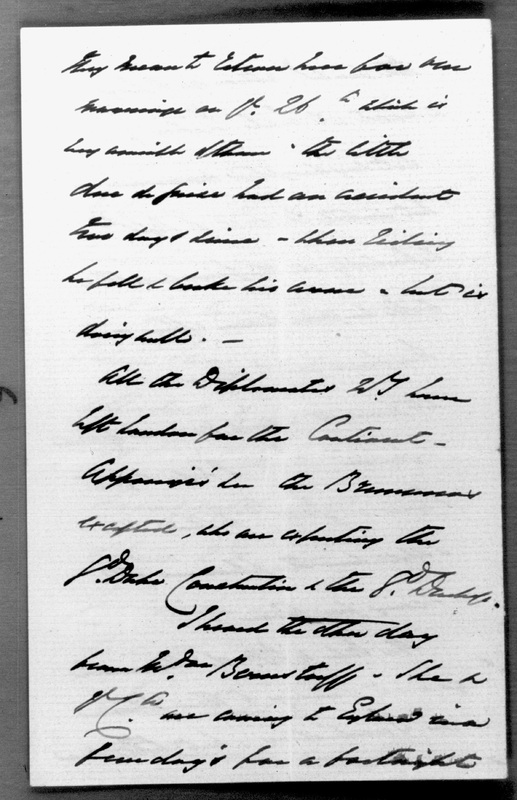 They mean to return here for our
marriage on ye. 26th. which is
very amiable of them. the little
duc de guise had an accident
two days since - when riding
he fell & broke his arm - but is
doing well. -
All the Diplomates have
left London for the Continent -
Apponyi's &c the Brunnows
excepted, who are expecting the
Gd. Duke Constantin & the Gd. Duchss.
I heard the other day
from Mdme Bernstorff - She &
ye Ct. are coming to England in a
few day's for a fortnight